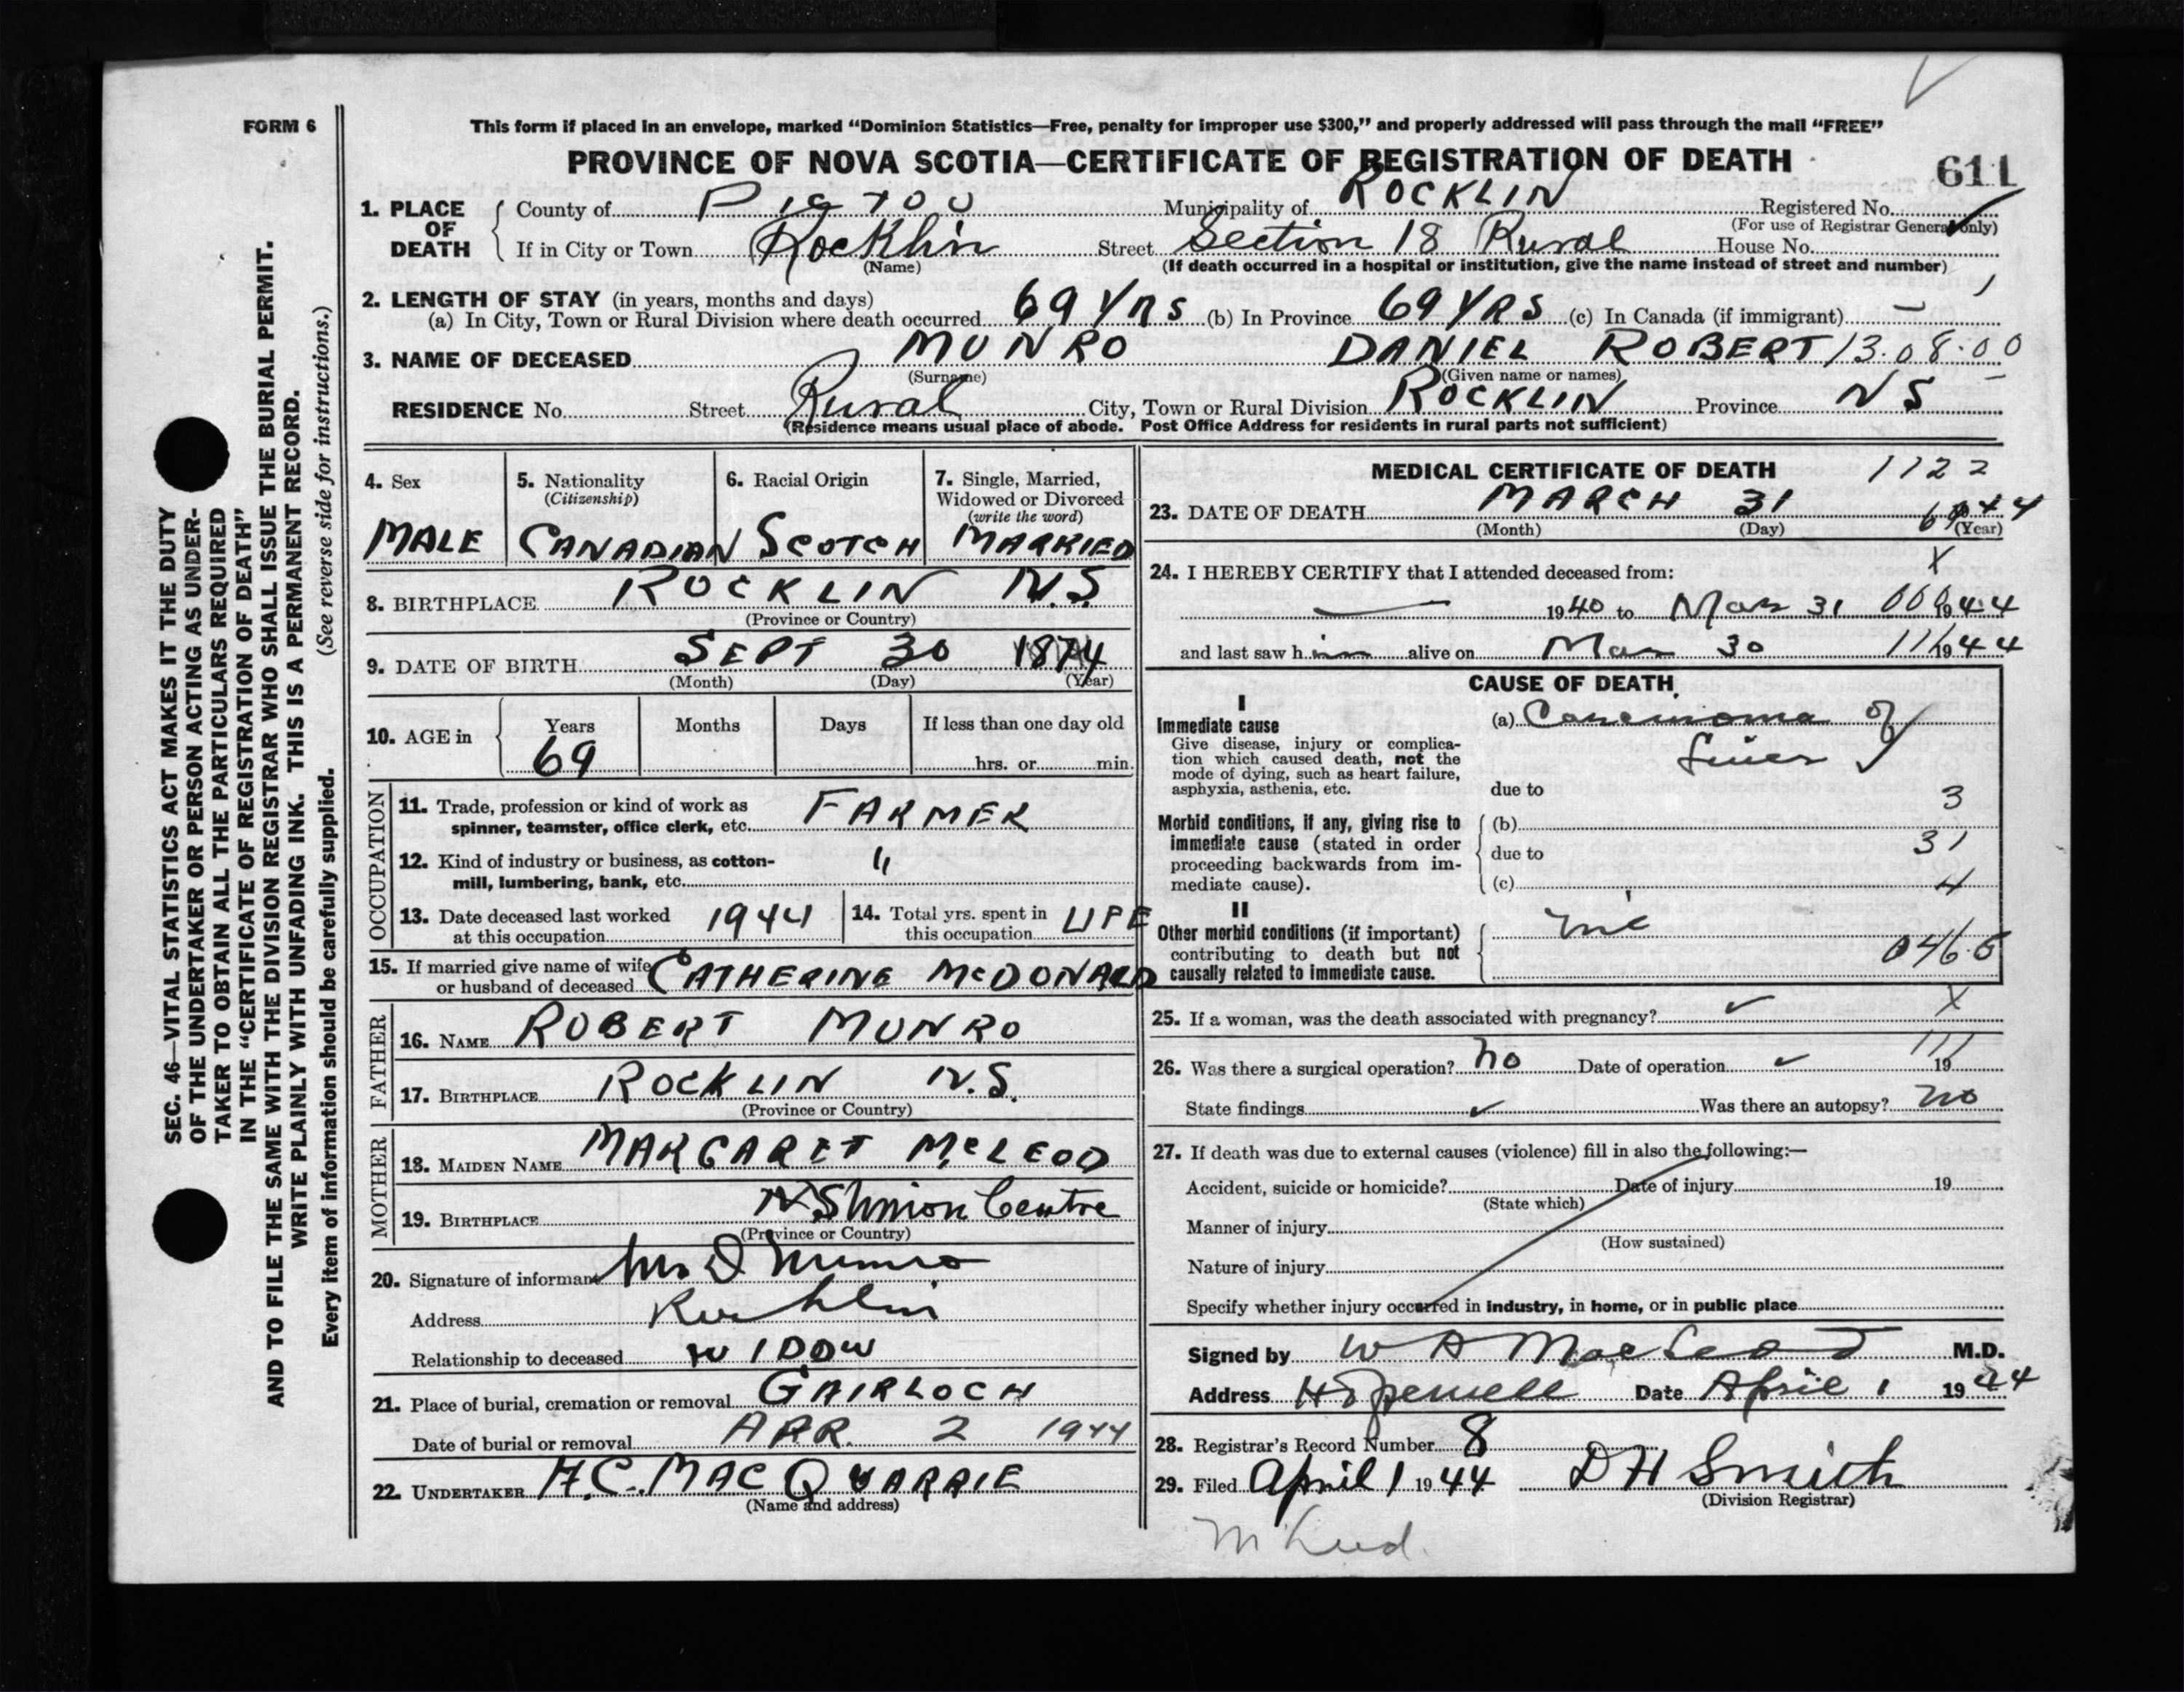 FORM 6
This form if placed in an envelope, marked “Dominion Statistics—Free, penalty for improper use $300,” and properly addressed will pass through the mail “FREE”
PROVINCE OF NOVA SCOTIA—CERTIFICATE OF REGISTRATION OF DEATH
611
1. PLACE OF DEATH
County of PICTOU Municipality of ROCKLIN Registered No.
(For use of Registrar General only)
If in City or Town Rocklin Street Section 18 Rural House No.
(Name)
(If death occurred in a hospital or institution, give the name instead of street and number)
2. LENGTH OF STAY (in years, months and days)
(a) In City, Town or Rural Division where death occurred 69 YRS (b) In Province 69 YRS (c) In Canada (if immigrant) —
3. NAME OF DECEASED MUNRO DANIEL ROBERT 13.08.00
(Surname) (Given name or names)
RESIDENCE No. Street Rural City, Town or Rural Division ROCKLIN Province NS
(Residence means usual place of abode. Post Office Address for residents in rural parts not sufficient)
4. Sex
MALE
5. Nationality
(Citizenship)
CANADIAN
6. Racial Origin
SCOTCH
7. Single, Married,
Widowed or Divorced
(write the word)
MARRIED
8. BIRTHPLACE ROCKLIN N.S.
(Province or Country)
9. DATE OF BIRTH SEPT 30 1874
(Month) (Day) (Year)
10. AGE in Years Months Days If less than one day old
69 hrs. or min.
OCCUPATION
11. Trade, profession or kind of work as
spinner, teamster, office clerk, etc. FARMER
12. Kind of industry or business, as cotton-
mill, lumbering, bank, etc. "
13. Date deceased last worked
at this occupation 1944
14. Total yrs. spent in
this occupation LIFE
15. If married give name of wife
or husband of deceased CATHERINE McDONALD
FATHER
16. NAME ROBERT MUNRO
17. BIRTHPLACE ROCKLIN N.S.
(Province or Country)
MOTHER
18. MAIDEN NAME MARGARET McLEOD
19. BIRTHPLACE NS Union Centre
(Province or Country)
20. Signature of informant Mrs D Munro
Address Rocklin
Relationship to deceased WIDOW
21. Place of burial, cremation or removal GAIRLOCH
Date of burial or removal APR. 2 1944
22. UNDERTAKER H.C. MACQUARRIE
(Name and address)
MEDICAL CERTIFICATE OF DEATH 1122
23. DATE OF DEATH MARCH 31
(Month) (Day) (Year)
24. I HEREBY CERTIFY that I attended deceased from: X
— 1940 to Mar 31 000 1944
and last saw him alive on Mar 30 111 1944
CAUSE OF DEATH
I
Immediate cause
Give disease, injury or complica-
tion which caused death, not the
mode of dying, such as heart failure,
asphyxia, asthenia, etc.
(a) Carcinoma of
Liver
due to
3
Morbid conditions, if any, giving rise to
immediate cause (stated in order
proceeding backwards from im-
mediate cause).
(b)
due to
31
(c)
4
II
Other morbid conditions (if important)
contributing to death but not
causally related to immediate cause.
046.5
25. If a woman, was the death associated with pregnancy? X
26. Was there a surgical operation? no Date of operation 111 19
State findings Was there an autopsy? no
27. If death was due to external causes (violence) fill in also the following:—
Accident, suicide or homicide? Date of injury 19
(State which)
Manner of injury
(How sustained)
Nature of injury
Specify whether injury occurred in industry, in home, or in public place
Signed by W A MacLeod M.D.
Address Hopewell Date April 1 1944
28. Registrar's Record Number 8
29. Filed April 1 1944 D H Smith
(Division Registrar)
SEC. 46—VITAL STATISTICS ACT MAKES IT THE DUTY
OF THE UNDERTAKER OR PERSON ACTING AS UNDER-
TAKER TO OBTAIN ALL THE PARTICULARS REQUIRED
IN THE “CERTIFICATE OF REGISTRATION OF DEATH”
AND TO FILE THE SAME WITH THE DIVISION REGISTRAR WHO SHALL ISSUE THE BURIAL PERMIT.
WRITE PLAINLY WITH UNFADING INK. THIS IS A PERMANENT RECORD.
(See reverse side for instructions.)
Every item of information should be carefully supplied.